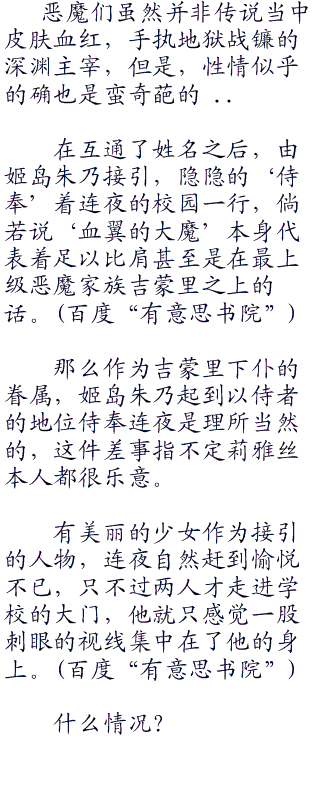 恶魔们虽然并非传说当中
皮肤血红，手执地狱战镰的
深渊主宰，但是，性情似乎
的确也是蛮奇葩的 ..
在互通了姓名之后，由
姬岛朱乃接引，隐隐的‘侍
奉’着连夜的校园一行，倘
若说‘血翼的大魔’本身代
表着足以比肩甚至是在最上
级恶魔家族吉蒙里之上的
话。(百度“有意思书院”)
那么作为吉蒙里下仆的
眷属，姬岛朱乃起到以侍者
的地位侍奉连夜是理所当然
的，这件差事指不定莉雅丝
本人都很乐意。
有美丽的少女作为接引
的人物，连夜自然赶到愉悦
不已，只不过两人才走进学
校的大门，他就只感觉一股
刺眼的视线集中在了他的身
上。(百度“有意思书院”)
什么情况？